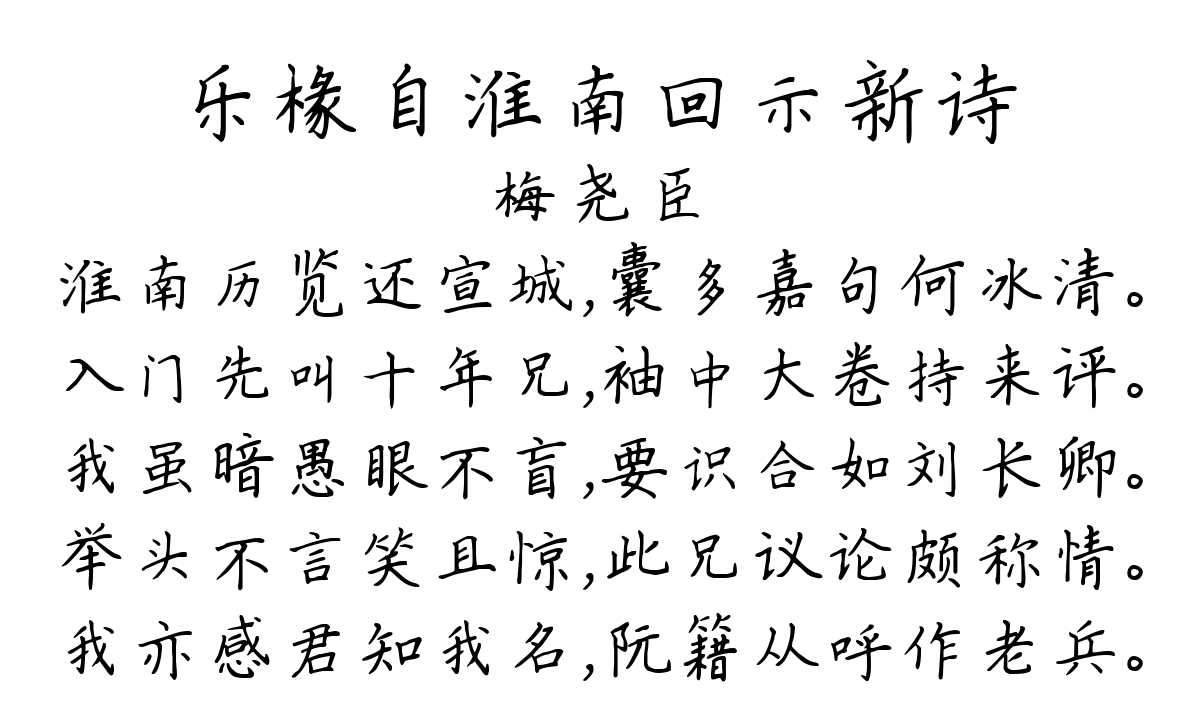 乐椽自淮南回示新诗
梅尧臣
淮南历览还宣城,囊多嘉句何冰清。
入门先叫十年兄,袖中大卷持来评。
我虽暗愚眼不盲,要识合如刘长卿。
举头不言笑且惊,此兄议论颇称情。
我亦感君知我名,阮籍从呼作老兵。